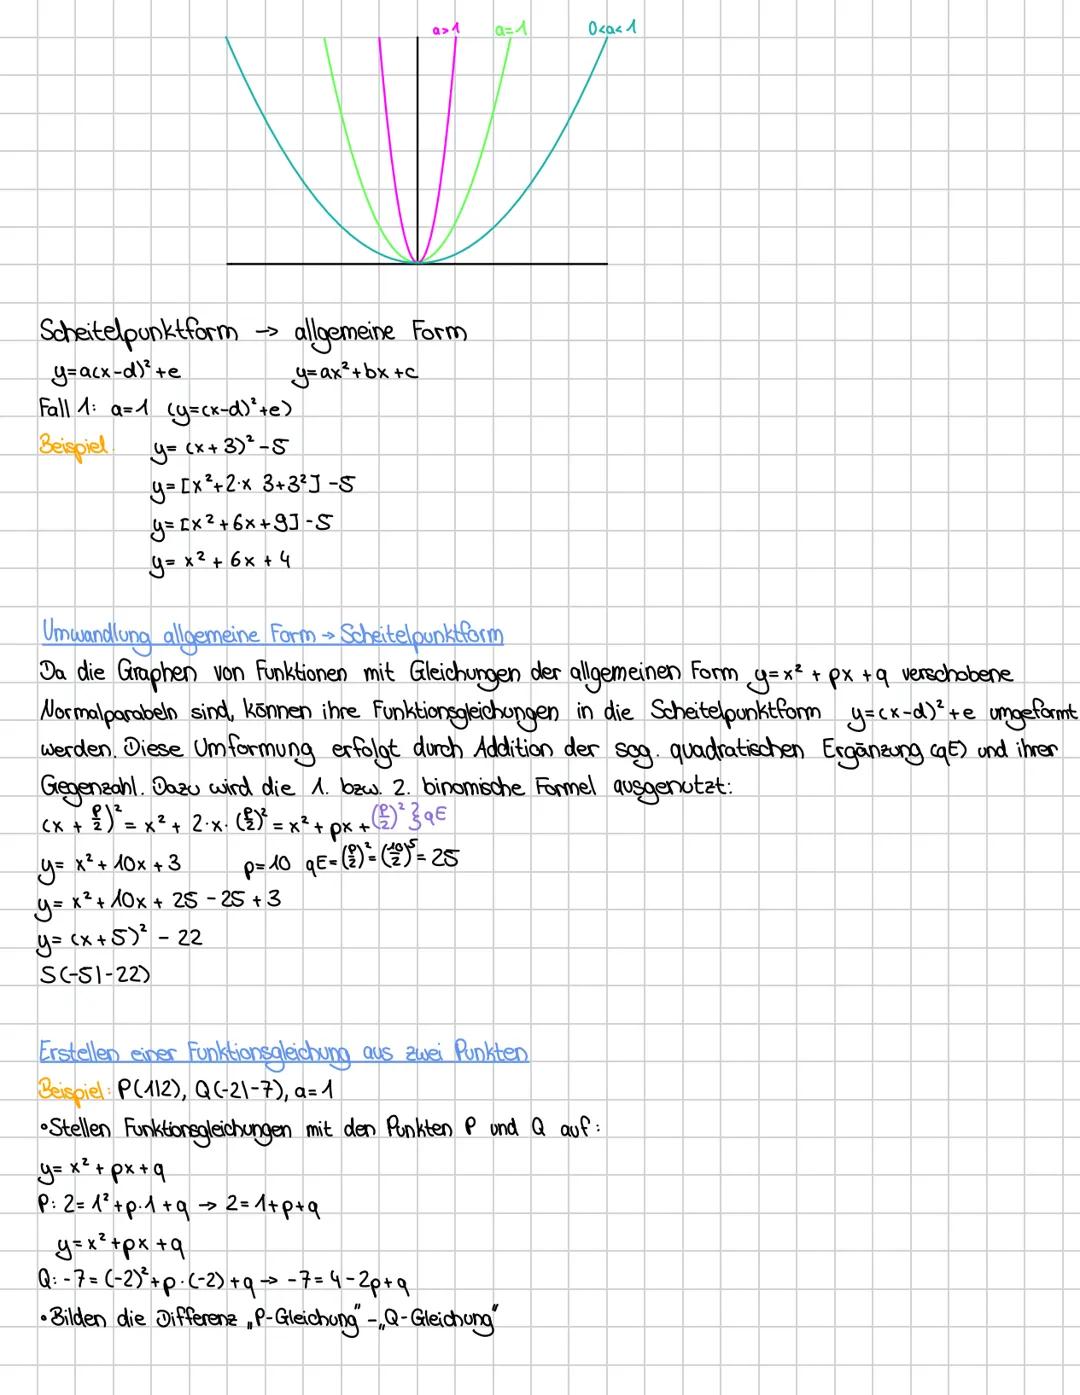 a>1 a=1 0<a<1
Scheitelpunktform → allgemeine Form
y=a(x-d)²+e y=ax²+bx+c
Fall 1: a=1 (y=(x-d)²+e)
Beispiel: y= (x+3)²-5
y=[x²+2·x 3+3²]-5
y=[x²+6x+9]-5
y= x²+6x+4
Umwandlung allgemeine Form → Scheitelpunktform
Da die Graphen von Funktionen mit Gleichungen der allgemeinen Form y=x² + px +q verschobene
Normalparabeln sind, können ihre Funktionsgleichungen in die Scheitelpunktform y=(x-d)²+e umgeformt
werden. Diese Umformung erfolgt durch Addition der sog. quadratischen Ergänzung (qE) und ihrer
Gegenzahl. Dazu wird die 1. bzw. 2. binomische Formel ausgenutzt:
(x + p/2)² = x² + 2·x·(p/2)² = x² + px + (p/2)² } qE
y= x²+10x+3 p=10 qE=(p/2)²=(10/2)⁵=25
y= x²+10x+ 25 -25 +3
y= (x+5)² - 22
S(-5|-22)
Erstellen einer Funktionsgleichung aus zwei Punkten
Beispiel: P(1|2), Q(-2|-7), a=1
•Stellen Funktionsgleichungen mit den Punkten P und Q auf:
y= x² + px+q
P: 2= 1²+p·1+q → 2=1+p+q
y=x²+px+q
Q: -7=(-2)²+p·(-2)+q → -7=4-2p+q
•Bilden die Differenz „P-Gleichung"-„Q-Gleichung"